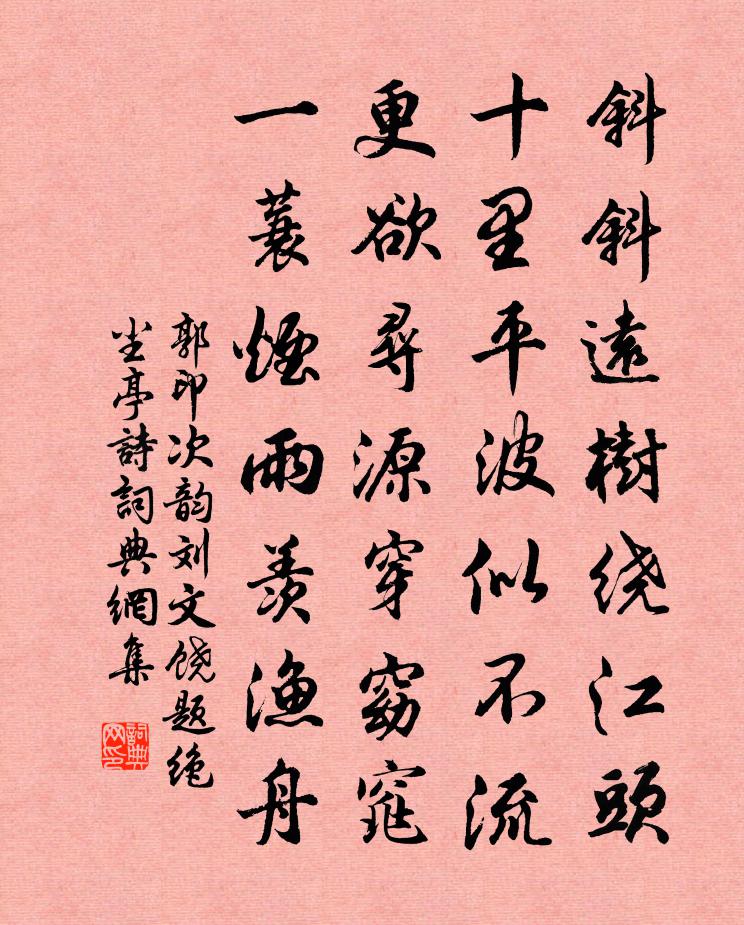 斜斜遠樹绕江頭
十里平波似不流
更欲尋源穿窈窕
一蓑煙雨羨漁舟
郭印次韵刘文饶题绝
尘亭詩詞典網集
詞典网印